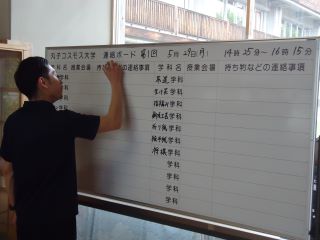 丸子コスモス大学 連絡ボード 第1回 5月29日(月) 14時25分~16時15分
科名 授業会場 持 の連絡事項 学科名 授業会場 持ち物などの連絡事項
茶道学科
生け花学科
学科
学科
折り紙学科
絵手紙学科
将棋学科
学科
学科
学科
学科